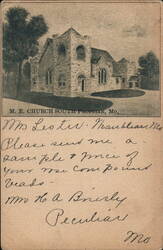 M. E. CHURCH SOUTH PECULIAR, Mo.
Mr Lester
Please send me a
sample & price of
your
Compound
Mrs H A
Peculiar
Mo